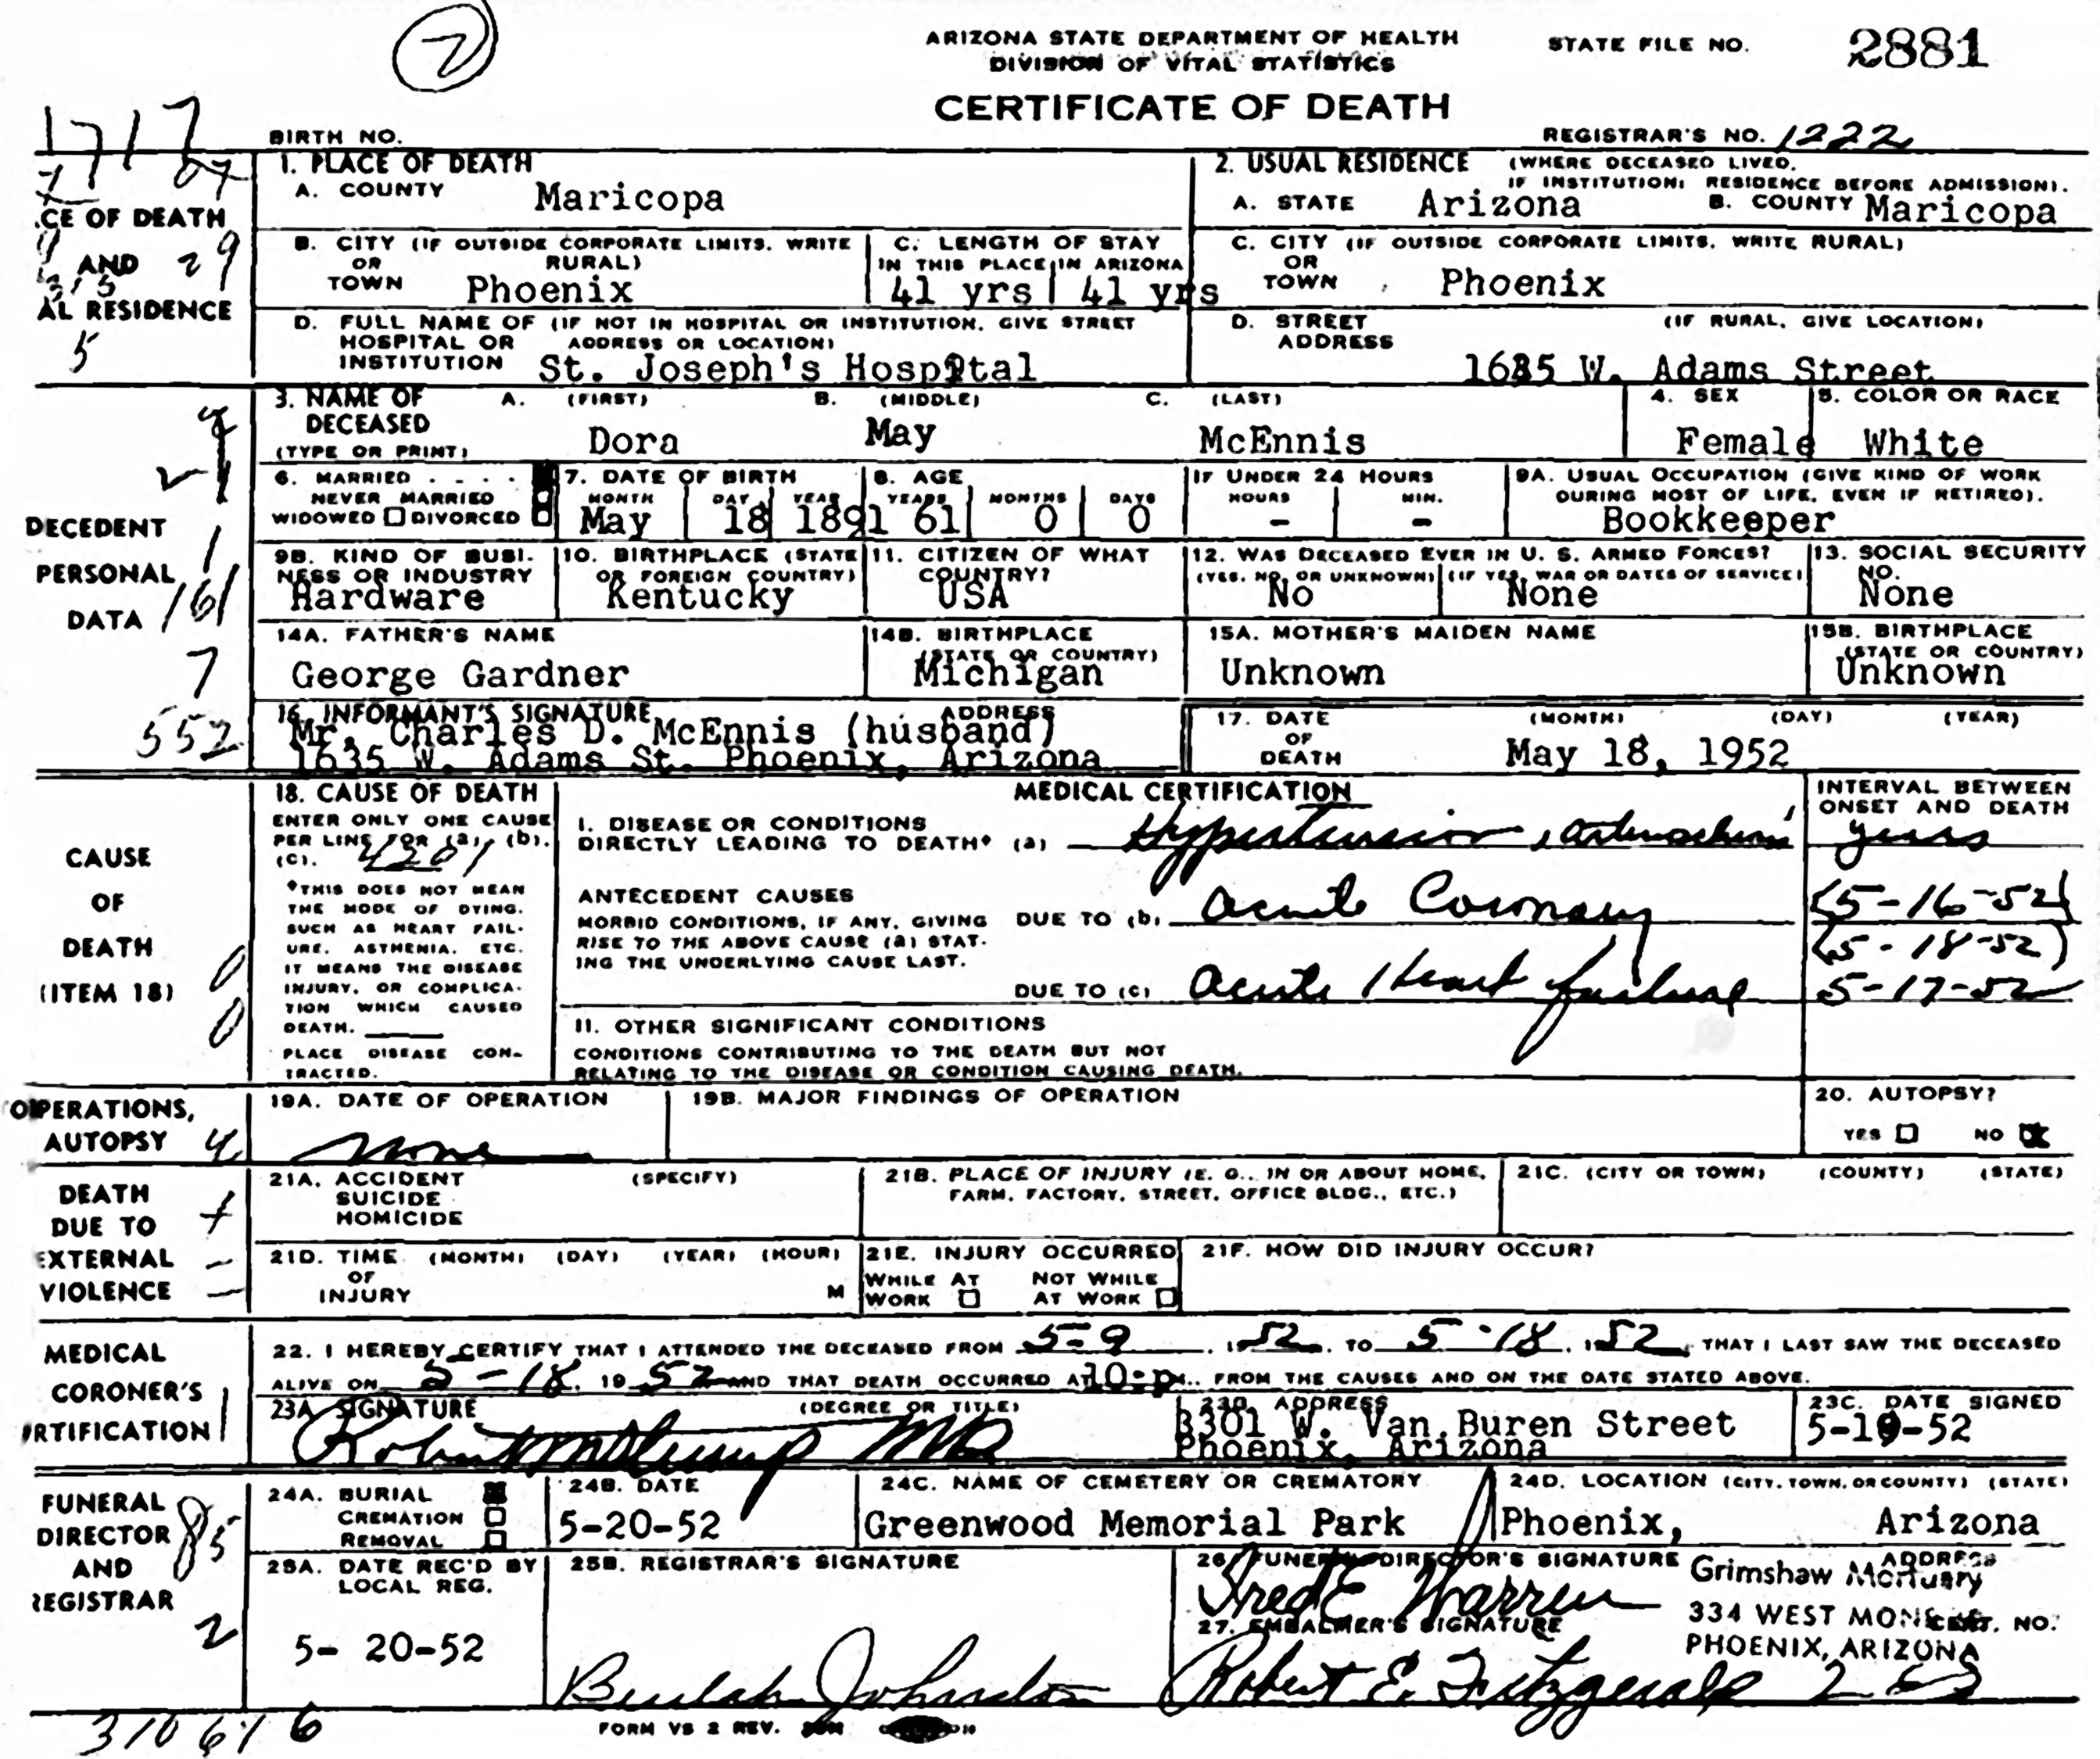 ARIZONA STATE DEPARTMENT OF HEALTH
DIVISION OF VITAL STATISTICS
STATE FILE NO. 2881
CERTIFICATE OF DEATH
1717
BIRTH NO.
REGISTRAR'S NO. 1222
1. PLACE OF DEATH
A. COUNTY Maricopa
2. USUAL RESIDENCE (WHERE DECEASED LIVED.
IF INSTITUTION: RESIDENCE BEFORE ADMISSION).
A. STATE Arizona B. COUNTY Maricopa
CE OF DEATH
AND 29
AL RESIDENCE
5
B. CITY (IF OUTSIDE CORPORATE LIMITS, WRITE
OR RURAL)
TOWN Phoenix
C. LENGTH OF STAY
IN THIS PLACE IN ARIZONA
41 yrs 41 yrs
C. CITY (IF OUTSIDE CORPORATE LIMITS, WRITE RURAL)
OR
TOWN Phoenix
D. FULL NAME OF (IF NOT IN HOSPITAL OR INSTITUTION, GIVE STREET
HOSPITAL OR ADDRESS OR LOCATION)
INSTITUTION St. Joseph's Hospital
D. STREET (IF RURAL, GIVE LOCATION)
ADDRESS
1635 W. Adams Street
DECEDENT
PERSONAL
DATA 161
7
552
3. NAME OF A. (FIRST) B. (MIDDLE) C. (LAST)
DECEASED
(TYPE OR PRINT) Dora May McEnnis
4. SEX
Female
5. COLOR OR RACE
White
6. MARRIED . . . .
NEVER MARRIED
WIDOWED DIVORCED
7. DATE OF BIRTH
MONTH DAY YEAR
May 18 1891
8. AGE
YEARS MONTHS DAYS
61 0 0
IF UNDER 24 HOURS
HOURS MIN.
- -
9A. USUAL OCCUPATION (GIVE KIND OF WORK
DURING MOST OF LIFE, EVEN IF RETIRED).
Bookkeeper
9B. KIND OF BUSI-
NESS OR INDUSTRY
Hardware
10. BIRTHPLACE (STATE
OR FOREIGN COUNTRY)
Kentucky
11. CITIZEN OF WHAT
COUNTRY?
USA
12. WAS DECEASED EVER IN U. S. ARMED FORCES?
(YES, NO, OR UNKNOWN) (IF YES, WAR OR DATES OF SERVICE)
No None
13. SOCIAL SECURITY
NO.
None
14A. FATHER'S NAME
George Gardner
14B. BIRTHPLACE
(STATE OR COUNTRY)
Michigan
15A. MOTHER'S MAIDEN NAME
Unknown
15B. BIRTHPLACE
(STATE OR COUNTRY)
Unknown
16. INFORMANT'S SIGNATURE ADDRESS
Mr. Charles D. McEnnis (husband)
1635 W. Adams St. Phoenix, Arizona
17. DATE (MONTH) (DAY) (YEAR)
OF
DEATH May 18, 1952
CAUSE
OF
DEATH
(ITEM 18)
0
0
18. CAUSE OF DEATH
ENTER ONLY ONE CAUSE
PER LINE FOR (a), (b),
(c). 4201
*THIS DOES NOT MEAN
THE MODE OF DYING,
SUCH AS HEART FAIL-
URE, ASTHENIA, ETC.
IT MEANS THE DISEASE
INJURY, OR COMPLICA-
TION WHICH CAUSED
DEATH.
PLACE DISEASE CON-
TRACTED.
MEDICAL CERTIFICATION
I. DISEASE OR CONDITIONS
DIRECTLY LEADING TO DEATH* (a) Hypertension,
ANTECEDENT CAUSES
MORBID CONDITIONS, IF ANY, GIVING DUE TO (b) Acute Coronary
RISE TO THE ABOVE CAUSE (a) STAT-
ING THE UNDERLYING CAUSE LAST.
DUE TO (c) Acute Heart failure
II. OTHER SIGNIFICANT CONDITIONS
CONDITIONS CONTRIBUTING TO THE DEATH BUT NOT
RELATING TO THE DISEASE OR CONDITION CAUSING DEATH.
INTERVAL BETWEEN
ONSET AND DEATH
years
(5-16-52)
(5-18-52)
5-17-52
OPERATIONS,
AUTOPSY 4
19A. DATE OF OPERATION
none
19B. MAJOR FINDINGS OF OPERATION
20. AUTOPSY?
YES NO X
DEATH
DUE TO
EXTERNAL
VIOLENCE
21A. ACCIDENT (SPECIFY)
SUICIDE
HOMICIDE
21B. PLACE OF INJURY (E. G., IN OR ABOUT HOME,
FARM, FACTORY, STREET, OFFICE BLDG., ETC.)
21C. (CITY OR TOWN) (COUNTY) (STATE)
21D. TIME (MONTH) (DAY) (YEAR) (HOUR)
OF
INJURY M
21E. INJURY OCCURRED
WHILE AT NOT WHILE
WORK AT WORK
21F. HOW DID INJURY OCCUR?
MEDICAL
CORONER'S
RTIFICATION
22. I HEREBY CERTIFY THAT I ATTENDED THE DECEASED FROM 5-9, 1952, TO 5-18, 1952, THAT I LAST SAW THE DECEASED
ALIVE ON 5-18, 1952 AND THAT DEATH OCCURRED AT 10:p M., FROM THE CAUSES AND ON THE DATE STATED ABOVE.
23A. SIGNATURE (DEGREE OR TITLE)
Robert MD
23B. ADDRESS
3301 W. Van Buren Street
Phoenix, Arizona
23C. DATE SIGNED
5-19-52
FUNERAL
DIRECTOR
AND
REGISTRAR
85
2
24A. BURIAL
CREMATION
REMOVAL
24B. DATE
5-20-52
24C. NAME OF CEMETERY OR CREMATORY
Greenwood Memorial Park
24D. LOCATION (CITY, TOWN, OR COUNTY) (STATE)
Phoenix, Arizona
25A. DATE REC'D BY
LOCAL REG.
5- 20-52
25B. REGISTRAR'S SIGNATURE
Beulah Johnston
26. FUNERAL DIRECTOR'S SIGNATURE ADDRESS
Fred E Warren
Grimshaw Mortuary
334 WEST
PHOENIX, ARIZONA
27. EMBALMER'S SIGNATURE CERT. NO.
Robert E. Fitzgerald
310616
FORM VS 2 REV.